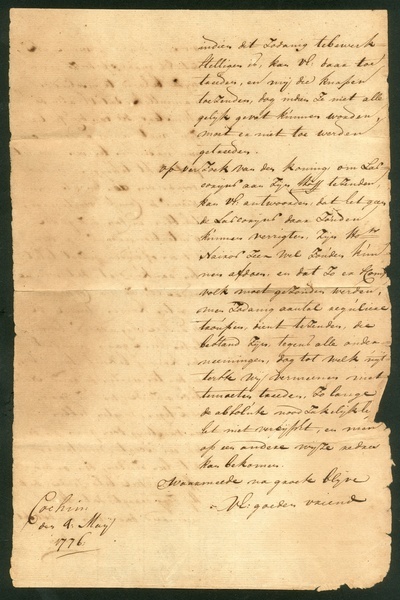 indien dit Zodanig tebewerk
stelligen is, kan VE. daar toe
treeden, en mij die knapen
toezenden, dog indien Ze niet alle
gelijk gevat kunnen worden,
moet er niet toe werden
getreeden.
op der Zoek van den koning om Las
corijns aan Zijn te Zenden,
kan VE. antwoorden, dat het gaen
de Lascorijns daar Zouden
kunnen verrigten, Zijn
Nairos Zeer wel Zouden kun
nen afdoen, en dat Zo er Comp
volk moet gezonden werden,
men Zodanig aantal reguliere
troupen, dient te Zenden, die
bestand Zijn, tegens alle onder
neemingen, dog tot welk uijt
terste wij vermeenen niet
temoeten treeden, Zo lange
de absolute noodzakelijkh.
het niet vereijscht, en men
op een andere wijze redres
kan bekomen.
Waarmeede na groete blijve
VE: goeden vriend
Cochim
den 4. Maij
1776